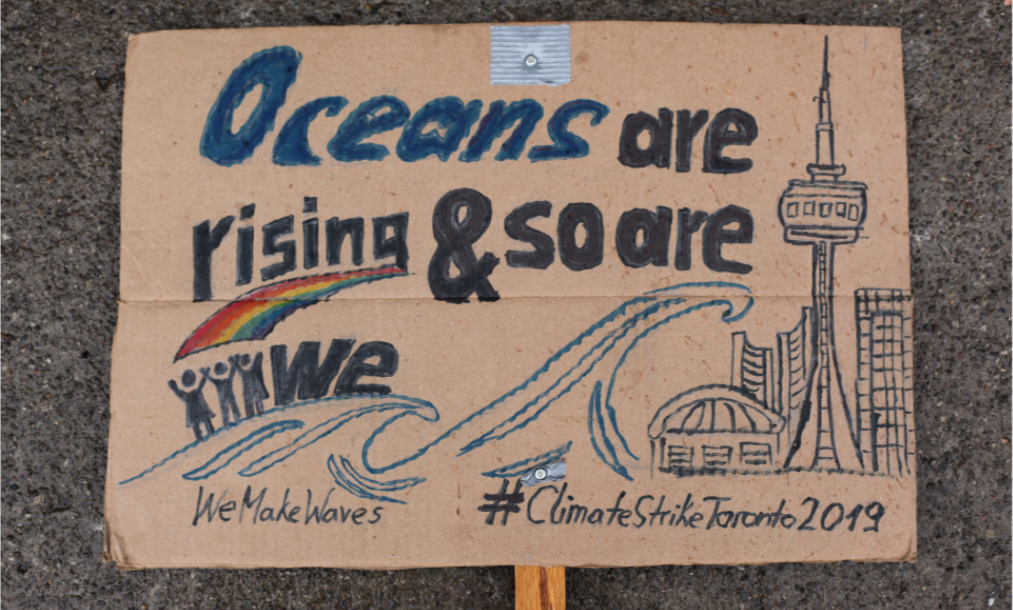 Oceans are
rising & so are
we
WeMakeWaves
#ClimateStrikeToronto2019